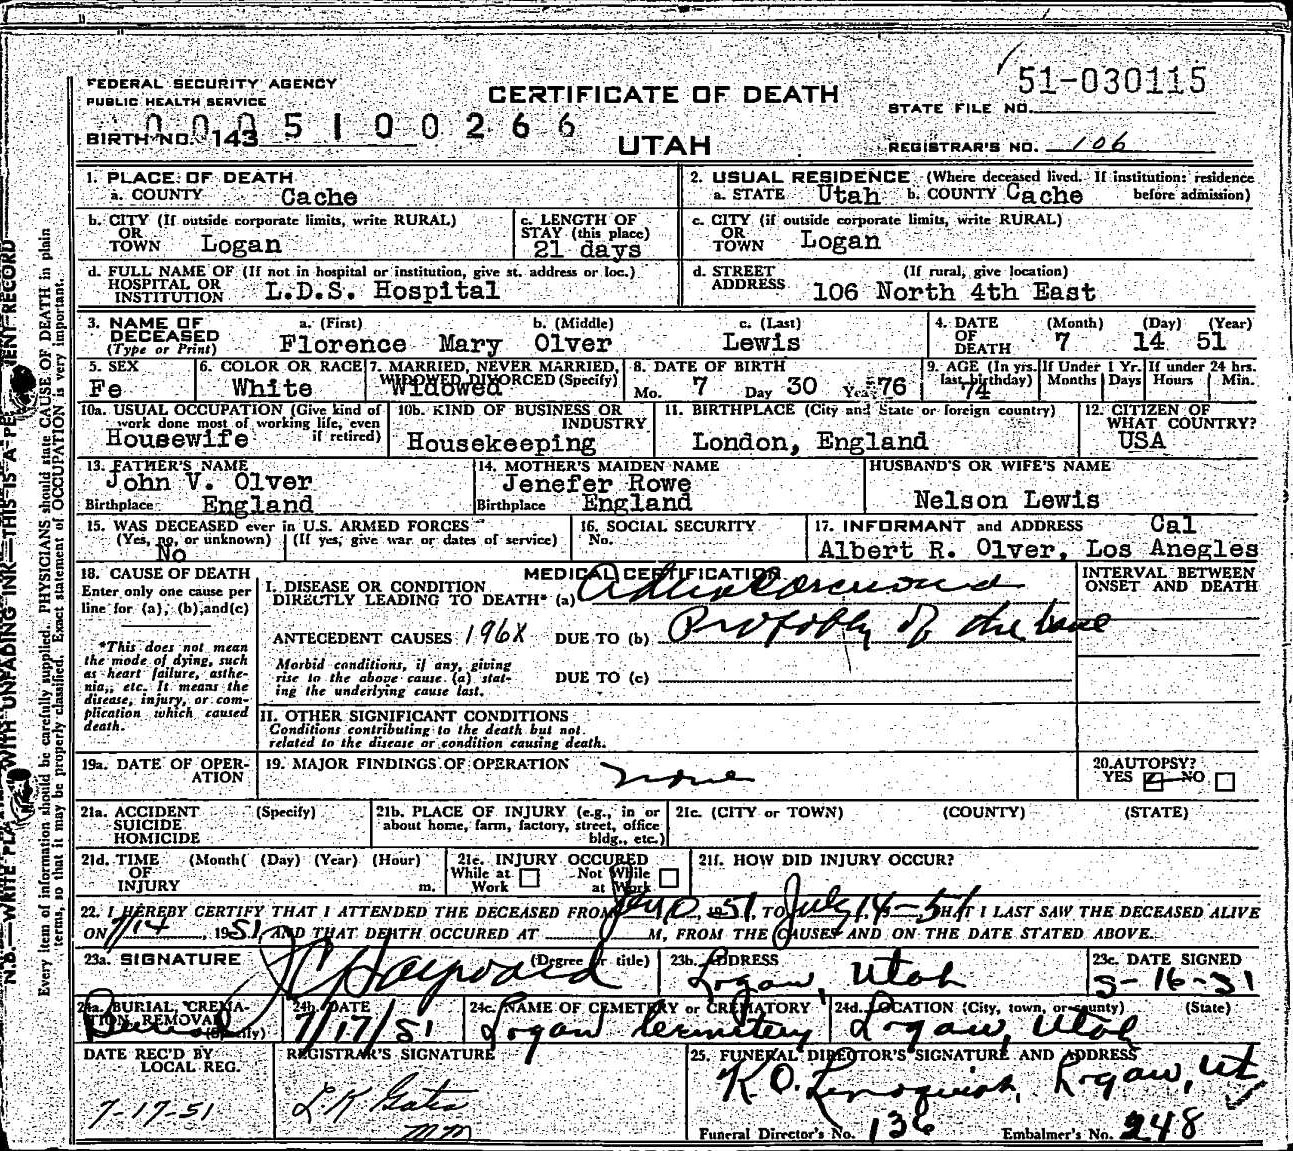 FEDERAL SECURITY AGENCY
PUBLIC HEALTH SERVICE
BIRTH NO. 143
0005100266
CERTIFICATE OF DEATH
UTAH
51-030115
STATE FILE NO.
REGISTRAR'S NO. 106
1. PLACE OF DEATH
a. COUNTY Cache
2. USUAL RESIDENCE (Where deceased lived. If institution: residence before admission)
a. STATE Utah b. COUNTY Cache
b. CITY (If outside corporate limits, write RURAL)
OR
TOWN Logan
c. LENGTH OF
STAY (this place)
21 days
c. CITY (if outside corporate limits, write RURAL)
OR
TOWN Logan
d. FULL NAME OF (If not in hospital or institution, give st. address or loc.)
HOSPITAL OR
INSTITUTION L.D.S. Hospital
d. STREET (If rural, give location)
ADDRESS 106 North 4th East
3. NAME OF
DECEASED
(Type or Print)
a. (First) b. (Middle) c. (Last)
Florence Mary Olver Lewis
4. DATE
OF
DEATH
(Month) (Day) (Year)
7 14 51
5. SEX
Fe
6. COLOR OR RACE
White
7. MARRIED, NEVER MARRIED,
WIDOWED, DIVORCED (Specify)
Widowed
8. DATE OF BIRTH
Mo. 7 Day 30 Year 76
9. AGE (In yrs.
last birthday)
74
If Under 1 Yr.
Months Days
If under 24 hrs.
Hours Min.
10a. USUAL OCCUPATION (Give kind of
work done most of working life, even
if retired)
Housewife
10b. KIND OF BUSINESS OR
INDUSTRY
Housekeeping
11. BIRTHPLACE (City and State or foreign country)
London, England
12. CITIZEN OF
WHAT COUNTRY?
USA
13. FATHER'S NAME
John V. Olver
Birthplace England
14. MOTHER'S MAIDEN NAME
Jenefer Rowe
Birthplace England
HUSBAND'S OR WIFE'S NAME
Nelson Lewis
15. WAS DECEASED ever in U.S. ARMED FORCES
(Yes, no, or unknown) (If yes, give war or dates of service)
No
16. SOCIAL SECURITY
No.
17. INFORMANT and ADDRESS Cal
Albert R. Olver, Los Anegles
18. CAUSE OF DEATH
Enter only one cause per
line for (a), (b), and (c)
*This does not mean
the mode of dying, such
as heart failure, asthe-
nia, etc. It means the
disease, injury, or com-
plication which caused
death.
MEDICAL CERTIFICATION
I. DISEASE OR CONDITION
DIRECTLY LEADING TO DEATH* (a)
ANTECEDENT CAUSES 196X DUE TO (b) Probably of the bone
Morbid conditions, if any, giving
rise to the above cause (a) stat-
ing the underlying cause last.
DUE TO (c)
II. OTHER SIGNIFICANT CONDITIONS
Conditions contributing to the death but not
related to the disease or condition causing death.
INTERVAL BETWEEN
ONSET AND DEATH
19a. DATE OF OPER-
ATION
19. MAJOR FINDINGS OF OPERATION
none
20. AUTOPSY?
YES NO
21a. ACCIDENT (Specify)
SUICIDE
HOMICIDE
21b. PLACE OF INJURY (e.g., in or
about home, farm, factory, street, office
bldg., etc.)
21c. (CITY or TOWN) (COUNTY) (STATE)
21d. TIME (Month( (Day) (Year) (Hour)
OF
INJURY m.
21e. INJURY OCCURED
While at Not While
Work at Work
21f. HOW DID INJURY OCCUR?
22. I HEREBY CERTIFY THAT I ATTENDED THE DECEASED FROM 51, TO July 14-51 THAT I LAST SAW THE DECEASED ALIVE
ON 7/14, 1951, AND THAT DEATH OCCURED AT M, FROM THE CAUSES AND ON THE DATE STATED ABOVE.
23a. SIGNATURE (Degree or title)
J C Hayward
23b. ADDRESS
Logan, Utah
23c. DATE SIGNED
5-16-51
24a. BURIAL CREMA-
TION, REMOVAL
(Specify)
Burial
24b. DATE
7/17/51
24c. NAME OF CEMETERY or CREMATORY
Logan Cemetery
24d. LOCATION (City, town, or county) (State)
Logan, Utah
DATE REC'D BY
LOCAL REG.
7-17-51
REGISTRAR'S SIGNATURE
L K Gates
mm
25. FUNERAL DIRECTOR'S SIGNATURE AND ADDRESS
K. O. Lindquist, Logan, Ut
Funeral Director's No. 136 Embalmer's No. 248
N.B.—WRITE PLAINLY WITH UNFADING INK—THIS IS A PERMANENT RECORD
Every item of information should be carefully supplied. PHYSICIANS should state CAUSE OF DEATH in plain
terms, so that it may be properly classified. Exact statement of OCCUPATION is very important.